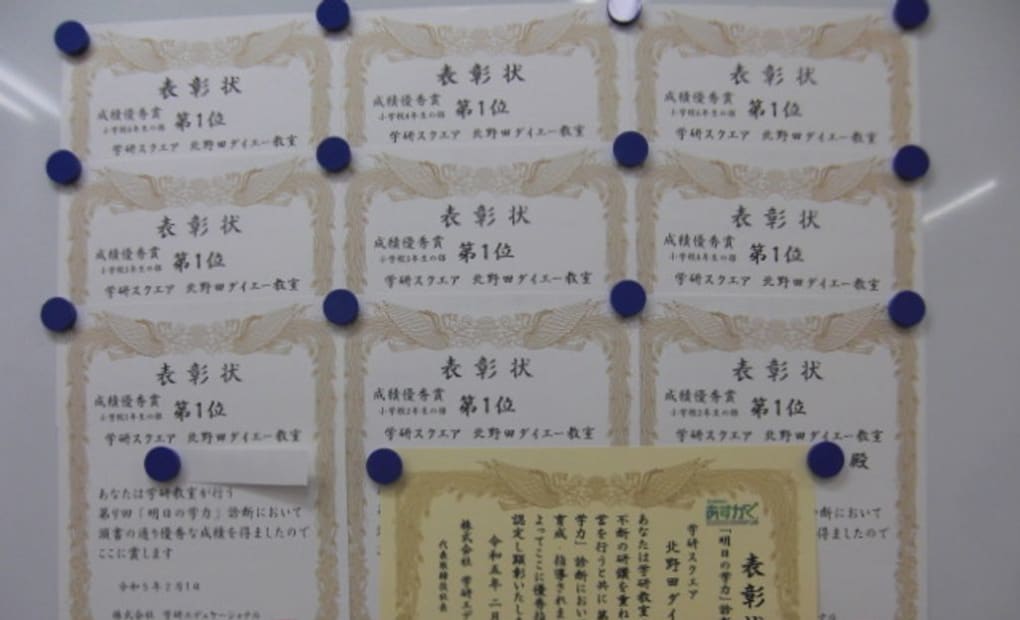 表彰状
成績優秀賞 第1位
学研スクエア 北野田ダイエー教室
表彰状
成績優秀賞 第1位
学研スクエア 北野田ダイエー教室
表彰状
成績優秀賞 第1位
学研スクエア 北野田ダイエー教室
表彰状
成績優秀賞 第1位
学研スクエア 北野田ダイエー教室
表彰状
成績優秀賞 第1位
学研スクエア 北野田ダイエー教室
表彰状
成績優秀賞 第1位
学研スクエア 北野田ダイエー教室
表彰状
成績優秀賞
小学校1年生の部 第1位
学研スクエア 北野田ダイエー教室
あなたは学研教室が行う
第9回「明日の学力」診断において
頭書の通り優秀な成績を得ましたので
ここに賞します
令和5年2月1日
株式会社 学研エデュケーショナル
表彰状
成績優秀賞
小学校2年生の部 第1位
学研スクエア 北野田ダイエー教室
表彰状
成績優秀賞
小学校2年生の部 第1位
学研スクエア 北野田ダイエー教室
殿
断において
得ましたので
あすがく
表彰
「明日の学力」診
学研スクエア
北野田ダイ
あなたは学研教室
不断の研鑽を重ね
営を行うと共に第
学力」診断におい
育成・指導されま
よってここに優秀
認定し顕彰いたし
令和五年 二月
株式会社 学研エデ
代表取締役社長